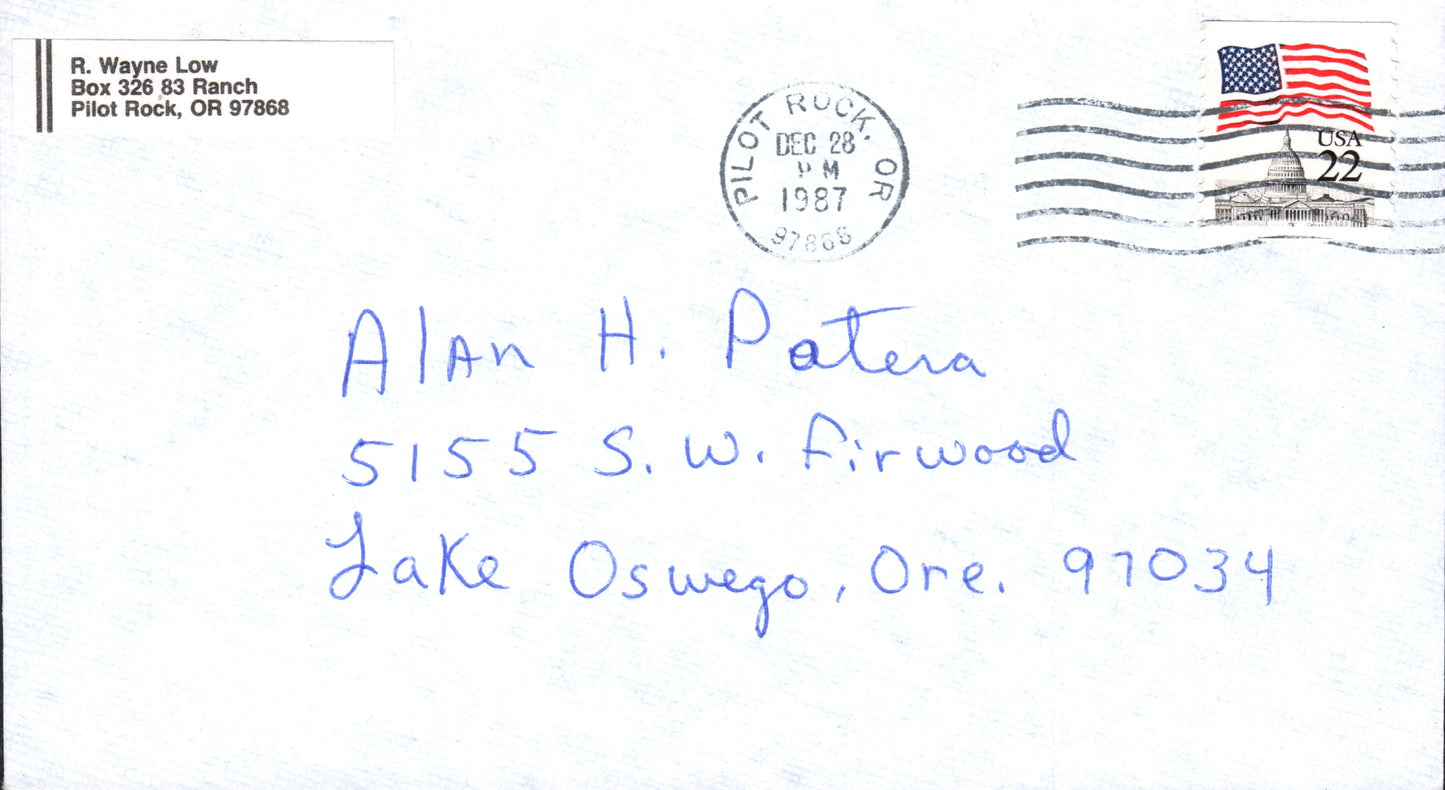 R. Wayne Low
Box 326 83 Ranch
Pilot Rock, OR 97868
PILOT ROCK, OR
DEC 28
PM
1987
97868
USA
22
Alan H. Patera
5155 S.W. Firwood
Lake Oswego, Ore. 97034